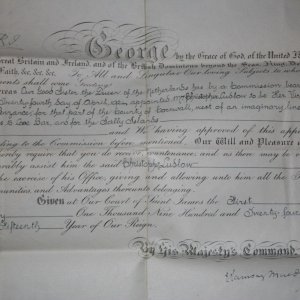 George by the Grace of God, of the United
Great Britain and Ireland, and of the British Dominions beyond the Seas, King,
Faith, &c. &c. &c. To All and Singular Our loving Subjects to
shall come, Greeting
Our Good Sister the Queen of the Netherlands has by a Commission bearing
Twenty fourth day of April, appointed Mr Ludlow to be Her
for that part of the County of Cornwall, west of an imaginary line
to Looe Bar, and for the Scilly Islands
and We having approved of this
to the Commission before mentioned, Our Will and Pleasure
require that you do receive, countenance, and as there may be
assist the said Ludlow
exercise of his Office, giving and allowing unto him all the
and Advantages thereunto belonging.
Given at Our Court of Saint James the First
One Thousand Nine Hundred and Twenty four
Fifteenth Year of Our Reign.
By His Majesty's Command
Ramsay